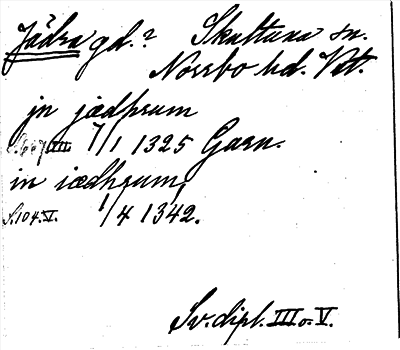 Jädra gd.? Skultuna sn.
Norrbo hd. Vstt.
jn jædhrum
S. 667 III 7/1 1325 Garn.
in iædhrum
S. 104. V. 1/4 1342.
Sv. dipl. III o. V.